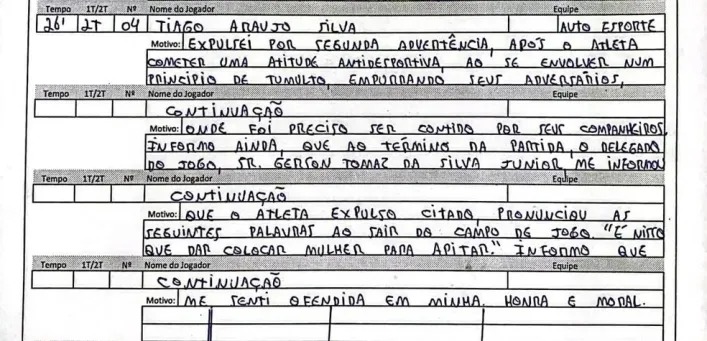 Tempo 1T/2T Nº Nome do Jogador Equipe
26' 2T 04 TIAGO ARAUJO SILVA AUTO ESPORTE
Motivo: EXPULSEI POR SEGUNDA ADVERTÊNCIA, APÓS O ATLETA
COMETER UMA ATITUDE ANTIDESPORTIVA, AO SE ENVOLVER NUM
PRINCÍPIO DE TUMULTO, EMPURRANDO SEUS ADVERSÁRIOS,
Tempo 1T/2T Nº Nome do Jogador Equipe
CONTINUAÇÃO
Motivo: ONDE FOI PRECISO SER CONTIDO POR SEUS COMPANHEIROS
INFORMO AINDA, QUE AO TÉRMINO DA PARTIDA, O DELEGADO
DO JOGO, SR. GERSON TOMAZ DA SILVA JUNIOR, ME INFORMOU
Tempo 1T/2T Nº Nome do Jogador Equipe
CONTINUAÇÃO
Motivo: QUE O ATLETA EXPULSO CITADO, PRONUNCIOU AS
SEGUINTES PALAVRAS AO SAIR DO CAMPO DE JOGO. "É NISTO
QUE DAR COLOCAR MULHER PARA APITAR." INFORMO QUE
Tempo 1T/2T Nº Nome do Jogador Equipe
CONTINUAÇÃO
Motivo: ME SENTI OFENDIDA EM MINHA. HONRA E MORAL.